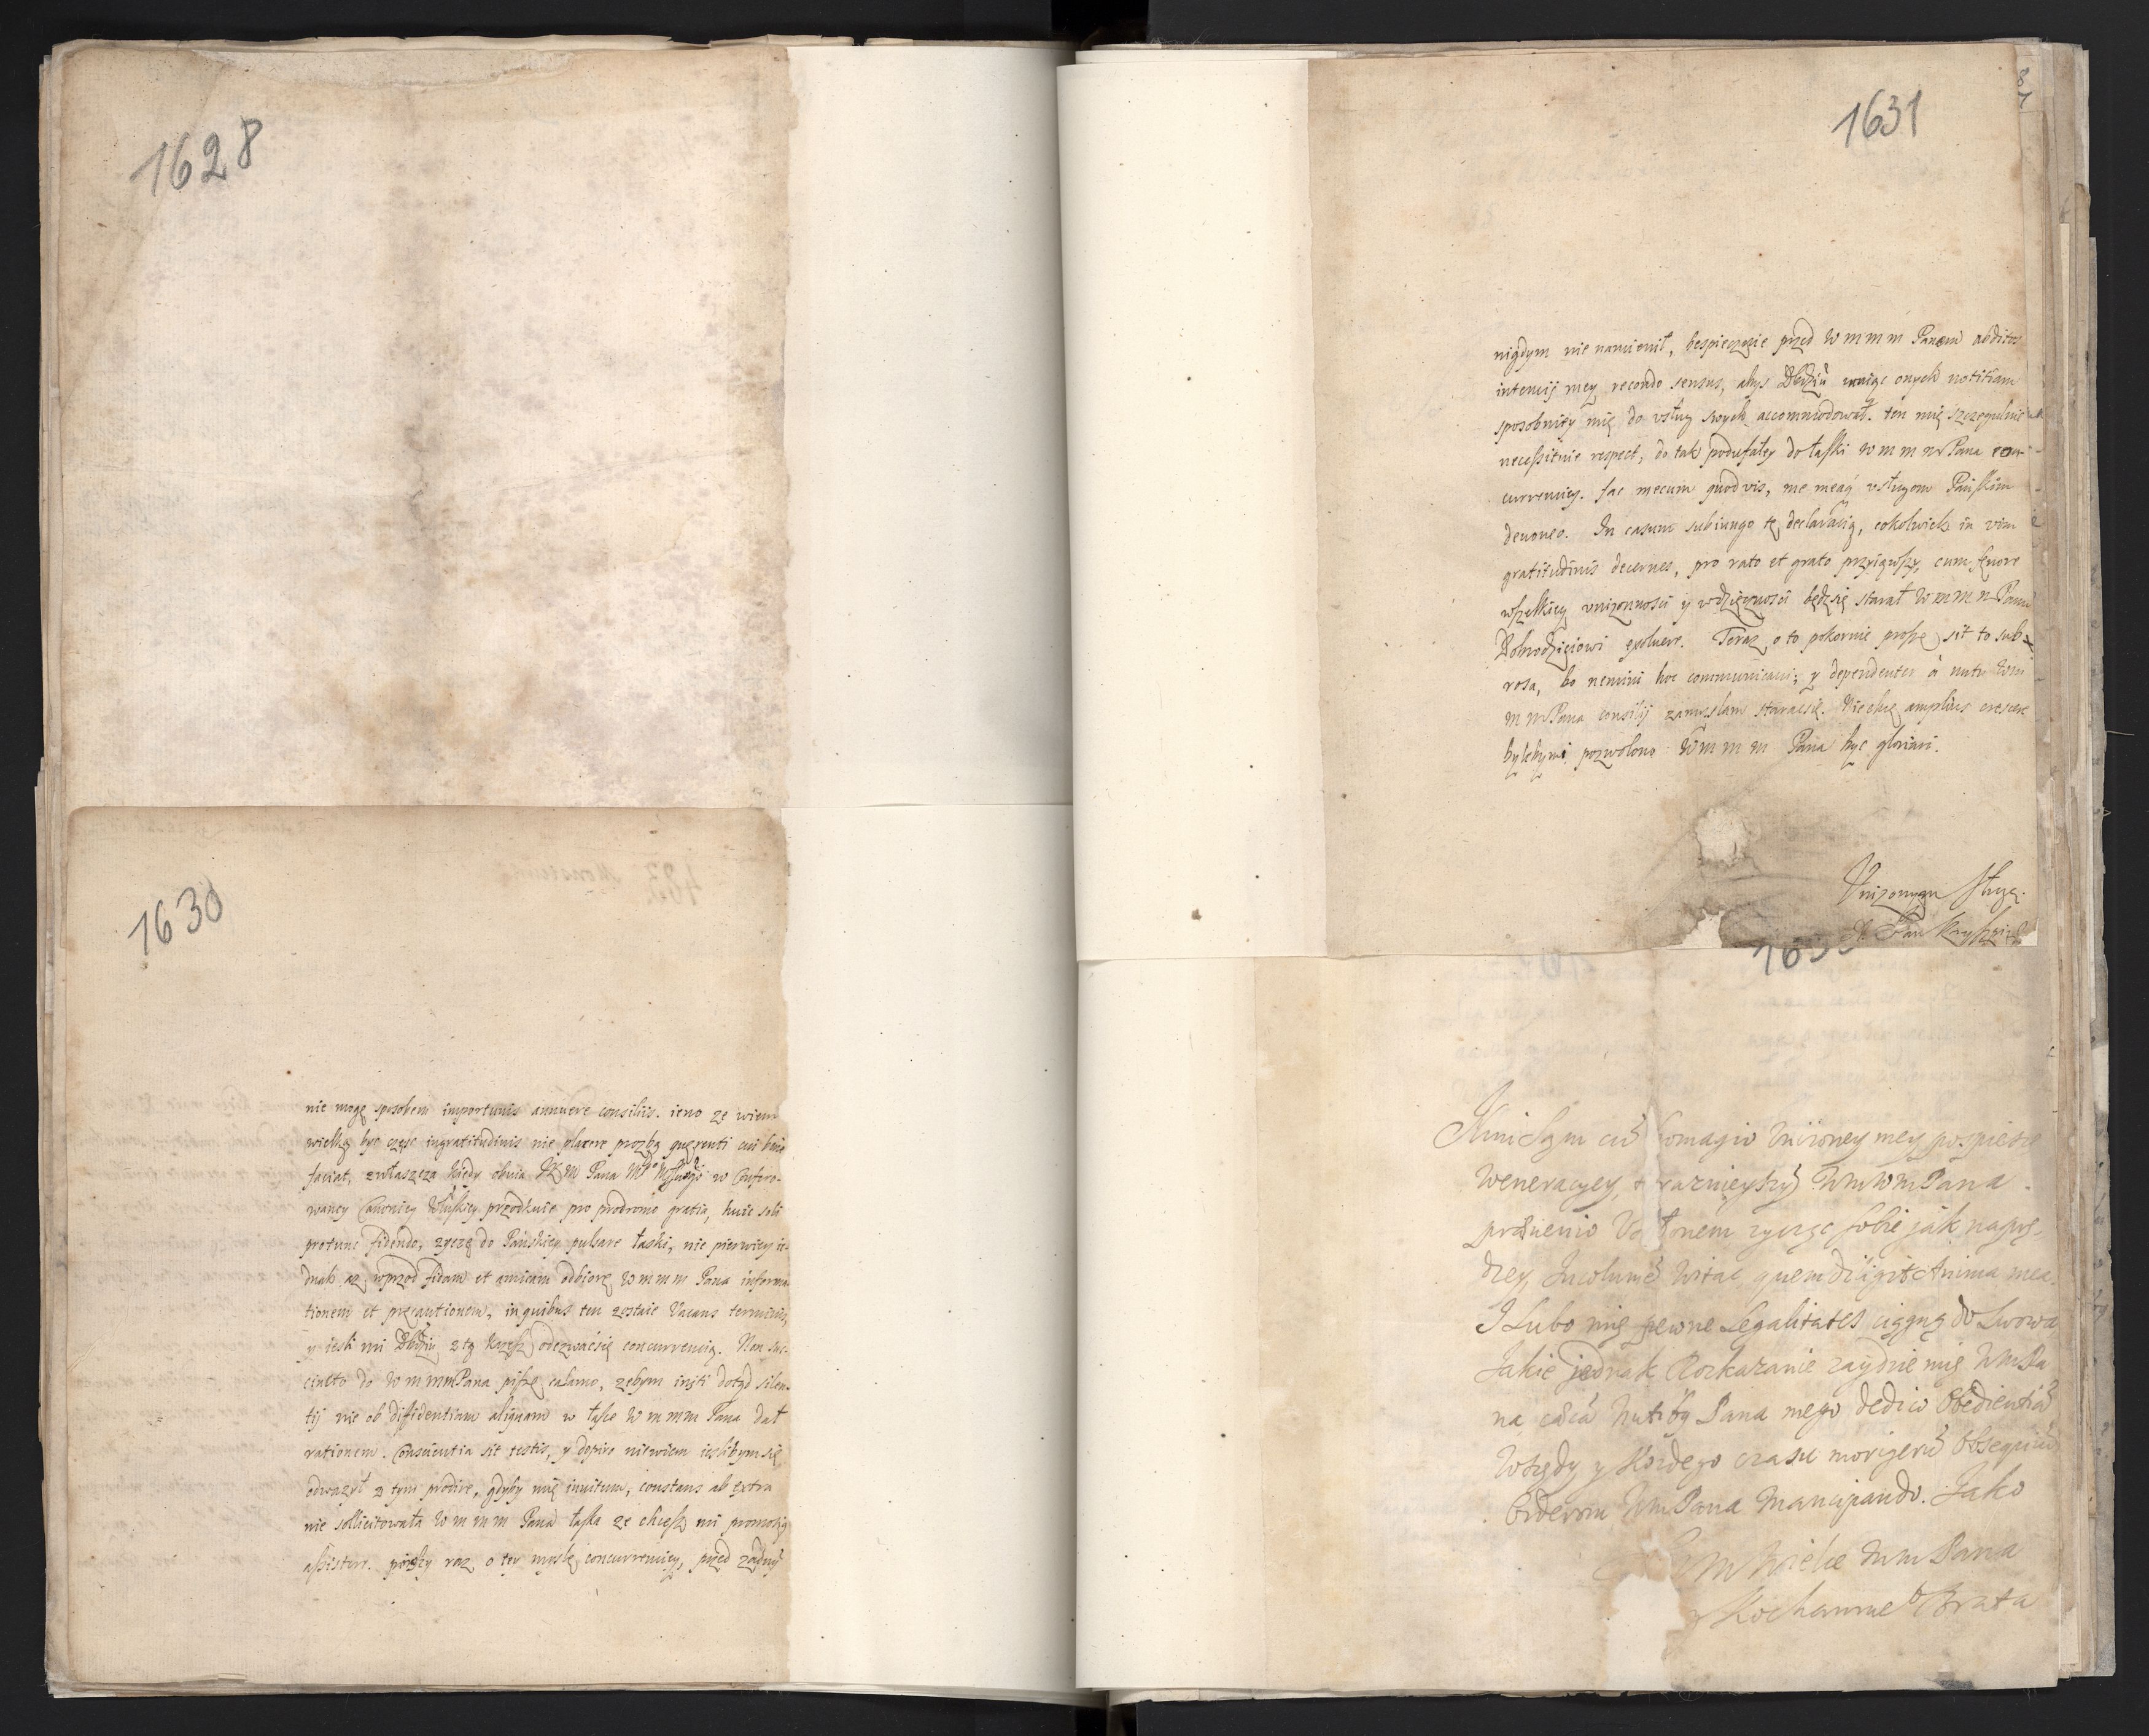 1628
1630
nie mogę sposobem importunis annuere consiliis. ieno ze wiem
wielką byc częsc ingratitudinis nie placere prozbą quęrenti cui bene
faciat, zwłaszcza kiedy obvia Pana w Confero-
waney Canoniey przodkuie pro prodromo gratia, huic soli
protunc fidendo, zyczę do Pańskiey pulsare łaski, nie pierwiey ie-
dnak az wprzod fidam et amicam odbiorę W m m m Pana informa
tionem et pręcautionem, in quibus ten zostaie Vacans terminis,
y iesli mi Dbdziu z tą kazesz odezwacsię concurrencią. Non suc-
cincto do W m mmPana piszę calamo, zebym iusti dotąd silen-
tij nie ob diffidentiam aliquam w łasce W m mm Pana dał
rationem. Conscientia sit testis, y dopiro niewiem ieslibym się
odwazył z tym prodire, gdyby mię inuitum, constans ab extra
nie sollicitowała W m m m Pana łaska ze chcesz mi promotią
assistere. raz o tey myslę concurrenciey, przed zadnym
1631
nigdym nie namienił, bespiecznie przed W m m m Panem abditos
intencij mey recondo sensus, abys Dbdziu maiąc onych notitiam
sposobniey mię do vsług swych accommodował. ten mię szczegulnie
necessituie respect, do tak podufałey do łaski W m m m Pana con-
currenciey. fac mecum quod vis, me meaq vsługom Pańskim
deuoueo. In casum subiungo tę declaratią, cokolwiek in vim
gratitudinis decernes, pro rato et grato przyiąwszy, cum fęnore
wszelkiey vnizonnosci y wdzięcznosci będęsię starał W m m m Panu
Dobrodzieiowi exoluere. Teraz o to pokornie proszę sit to sub
rosa, bo nemini hoc communicaui, y dependenter à nutu Wm
m mPana consilij zamyslam staracsię. Niechcę amplius crescere
bylebymi pozwolono W m m m Pana byc gloriari.
Vnizonym sługą.
X. Jan
cum homagio Vnizoney mey pospiesze
weneracyey, WmWmPana.
zycząc sobie jak nayprę-
dzey, Incolumem Witac, quem diligit Anima mea.
I Lubo mię pewne Legalitates ciągną do Lwowa
Jakie jednak Rozkazanie zaydzie mię WmPa
na, Pana mego dedico Obedientiam
Wszędy y Kozdego czasu morigerum Obsequium
Orderom WmPana Mancipando. Jako
Wm Wielce WmPana
y Kochanne&ordm; Brata